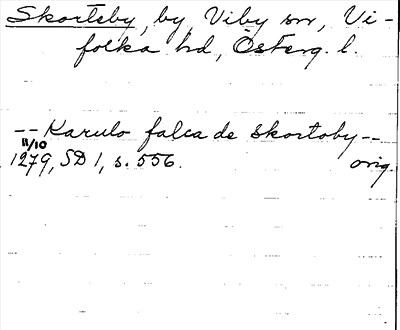 Skorteby, by, Viby sn, Vi-
folka hd, Österg. l.
-- Karulo falca de Skortoby --
11/10
1279, SD 1, s. 556. orig.